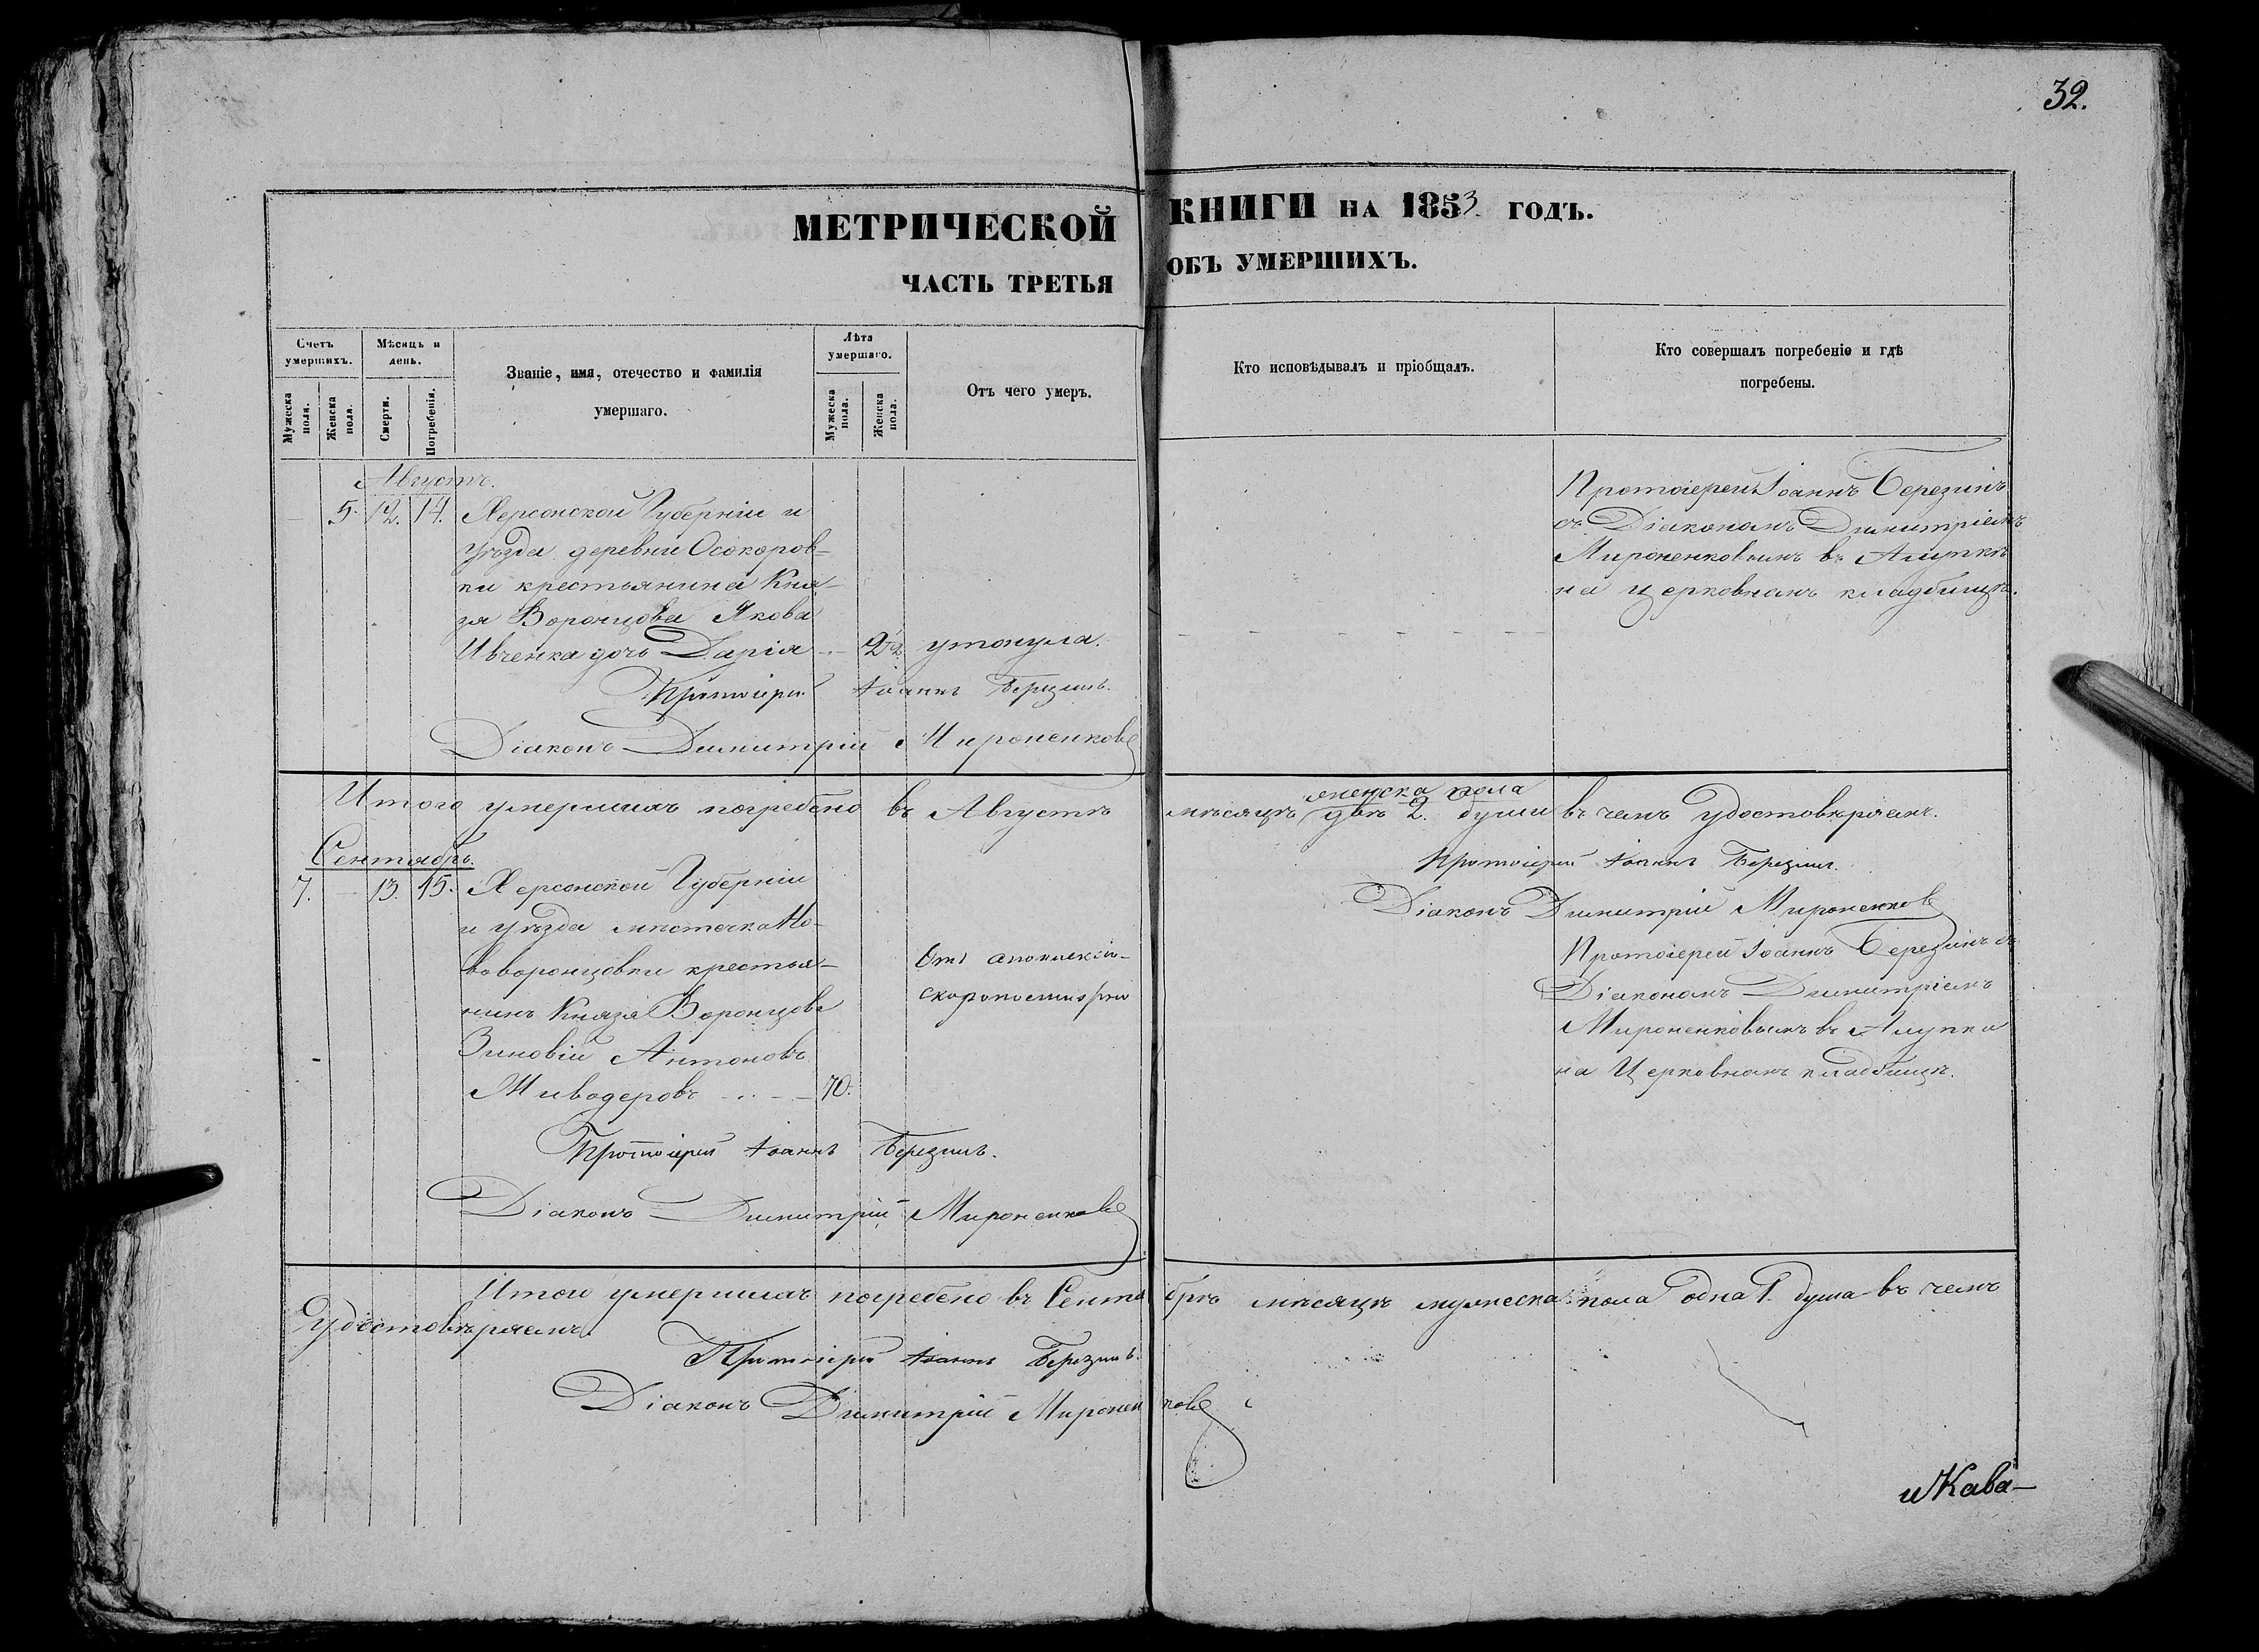 32.
МЕТРИЧЕСКОЙ КНИГИ НА 1853 ГОДЪ.
ЧАСТЬ ТРЕТЬЯ ОБЪ УМЕРШИХЪ.
Счетъ умершихъ.
Мужеска пола.
Женска пола.
Мѣсяцъ и день.
Смерти.
Погребенія.
Званіе, имя, отечество и фамилія
умершаго.
Лѣта умершаго.
Мужеска пола.
Женска пола.
Отъ чего умеръ.
Кто исповѣдывалъ и пріобщалъ.
Кто совершалъ погребеніе и гдѣ
погребены.
Августъ.
5. 12. 14. Херсонской Губерніи и
уѣзда деревни Осокоров-
ки крестьянина Кня-
зя Воронцова Якова
Ивченка дочь Дарія 2 1/2 утонула.
Протоіерей Іоаннъ Березинъ
съ Діакономъ Димитріемъ
Мироненковымъ въ Алупкѣ
на церковномъ кладбищѣ.
Протоіерей Іоаннъ Березинъ.
Діаконъ Димитрій Мироненковъ
Итого умершихъ погребено въ Августѣ мѣсяцѣ женска пола двѣ 2. души въ чемъ удостовѣряемъ.
Протоіерей Іоаннъ Березинъ.
Діаконъ Димитрій Мироненковъ
Сентябрь.
7. 13. 15. Херсонской Губерніи
и уѣзда мѣстечка Но-
воворонцовки крестья-
нинъ Князя Воронцова
Зиновій Антоновъ
Живодеровъ 70.
Отъ апоплексіи
скоропостижно
Протоіерей Іоаннъ Березинъ съ
Діакономъ Димитріемъ
Мироненковымъ въ Алупки
на Церковномъ кладбищѣ.
Протоіерей Іоаннъ Березинъ.
Діаконъ Димитрій Мироненковъ
Итого умершихъ погребено въ Сентябрѣ мѣсяцѣ мужеска пола одна 1. душа въ чемъ
удостовѣряемъ.
Протоіерей Іоаннъ Березинъ.
Діаконъ Димитрій Мироненковъ
и Кава-